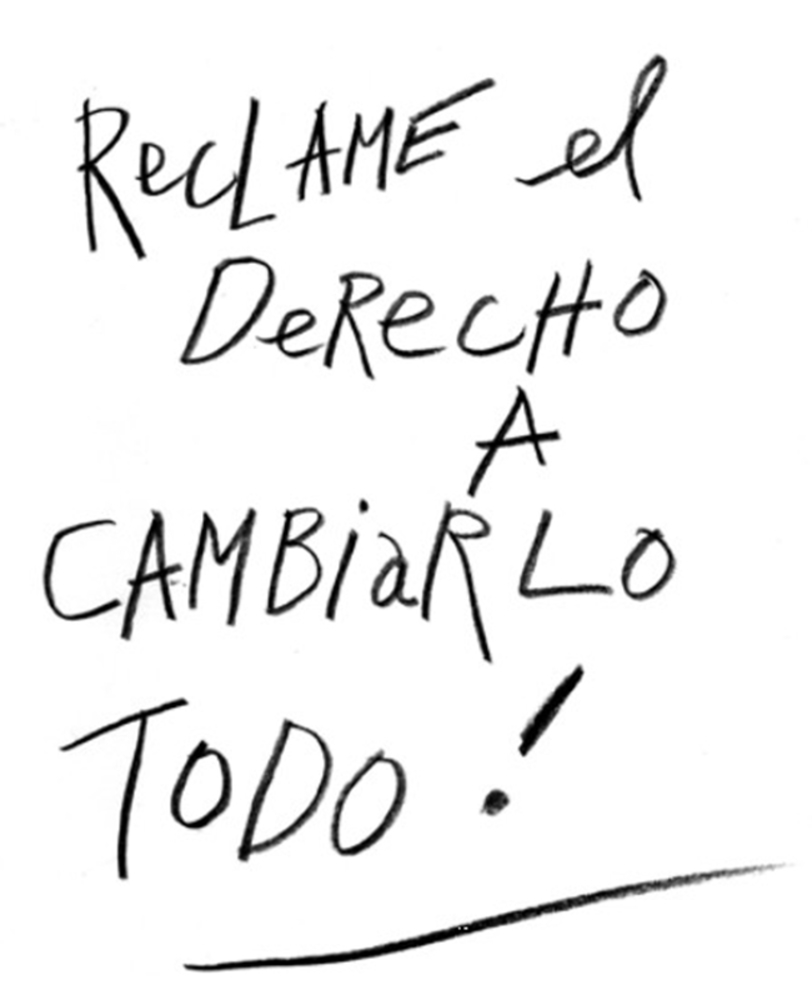 RecLAME el
DeRecHO
A
CAMBiaRLO
TODO!